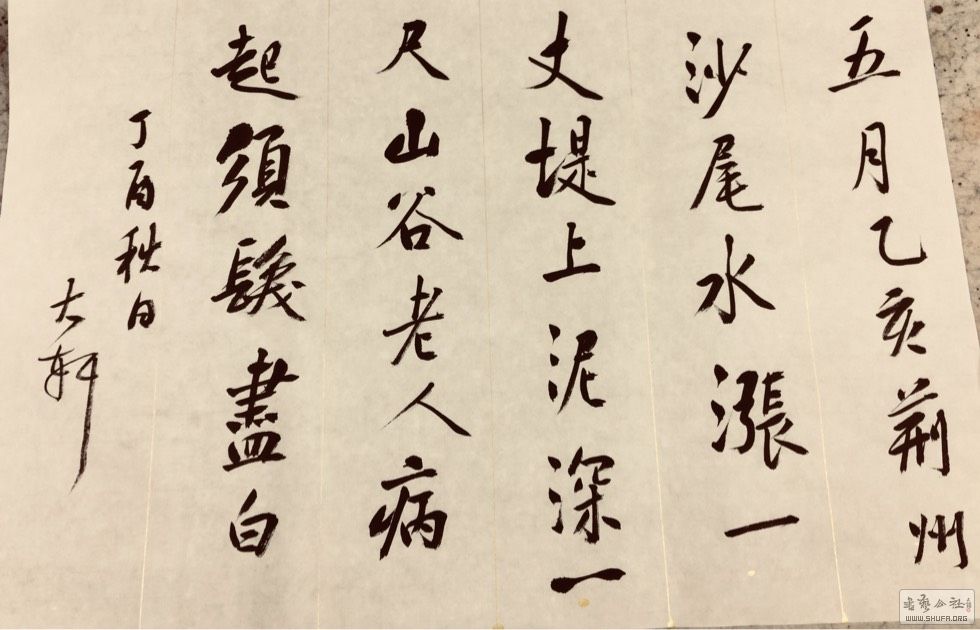 五月乙亥荆州
沙尾水漲一
丈堤上泥深一
尺山谷老人病
起須髮盡白
丁酉秋日
大軒
书艺公社
WWW.SHUFA.ORG